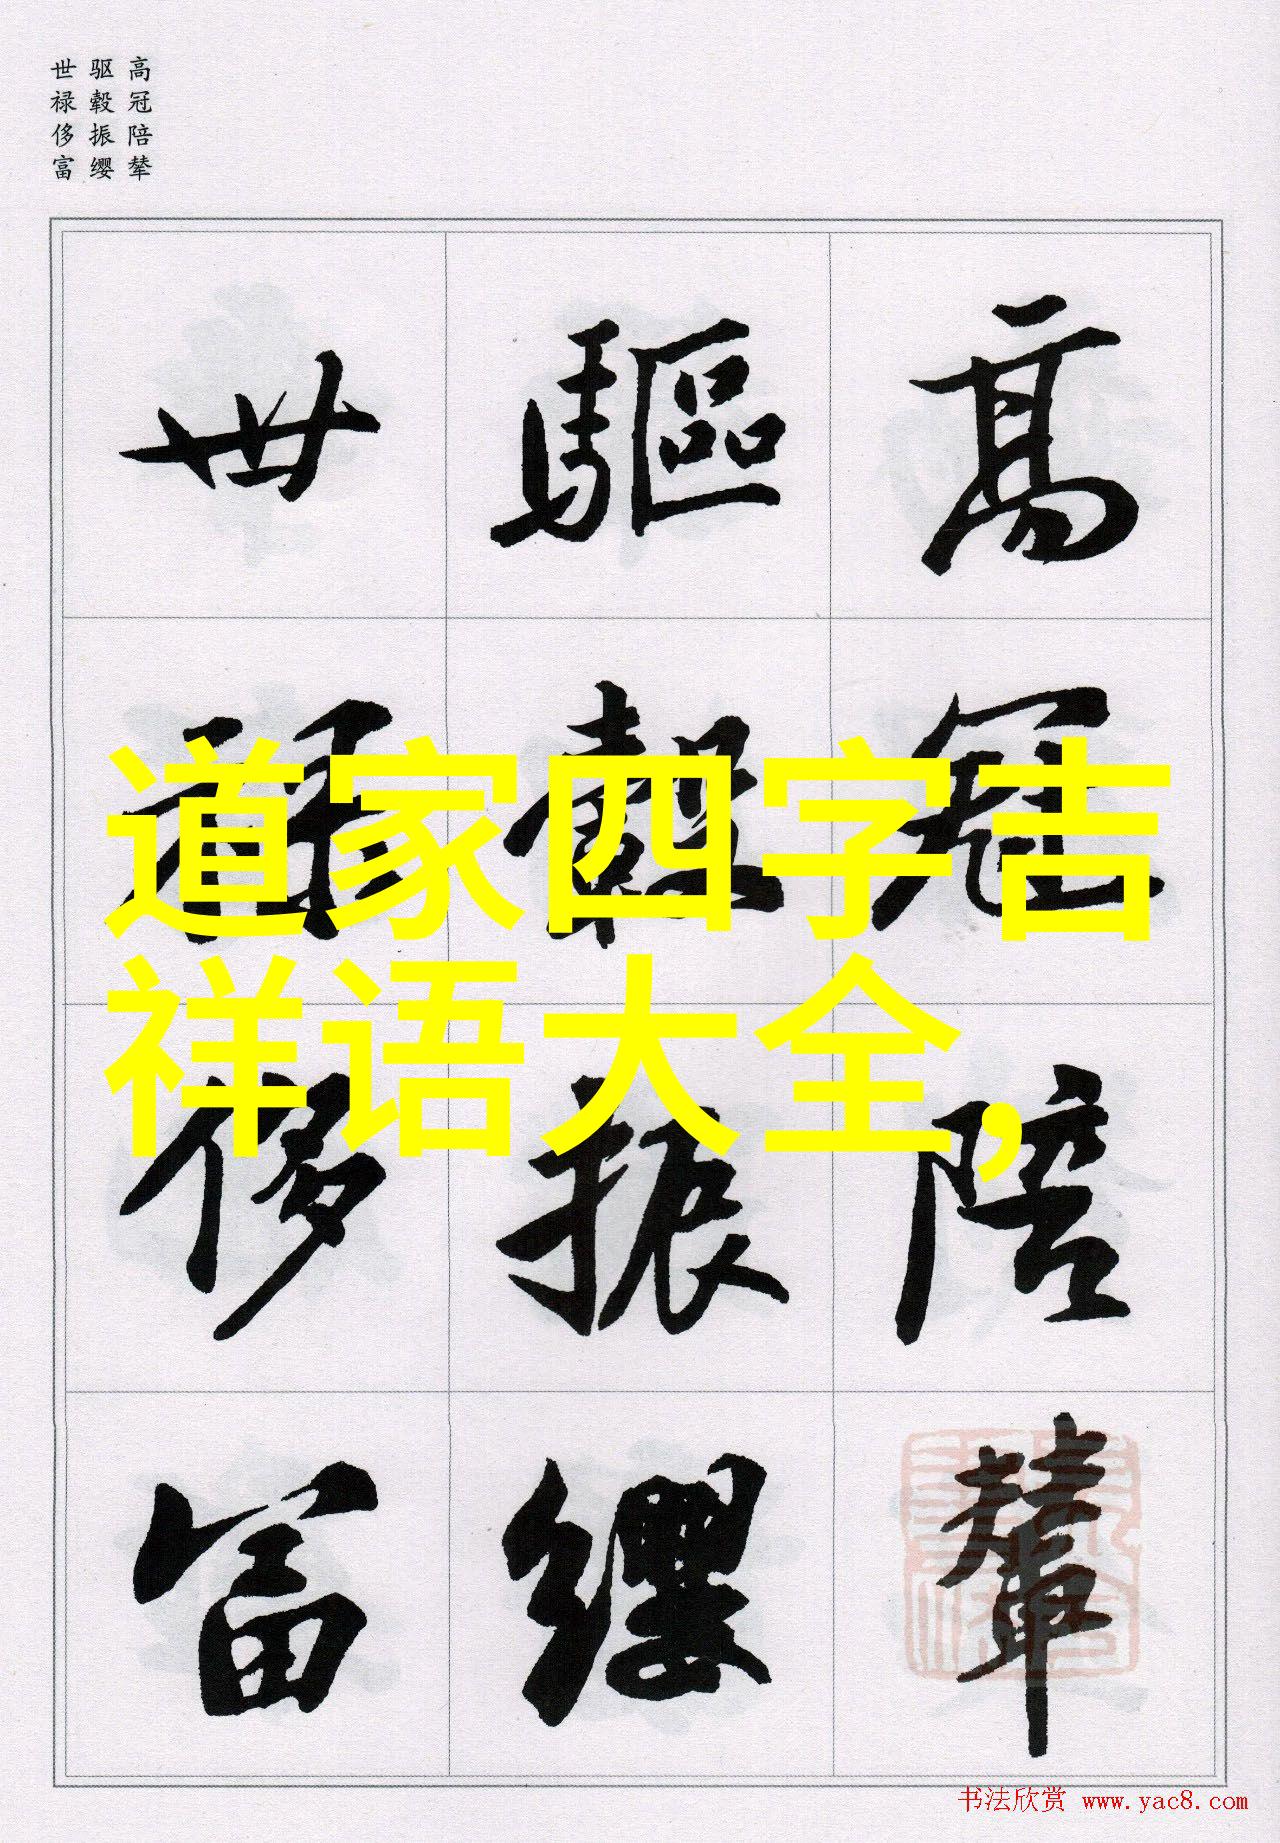 高冠陪辇
驱毂振缨
世禄侈富
高冠陪輦
驅轂振纓
世禄侈富
道家四字吉
祥语大全,
书法欣赏 www.yac8.com